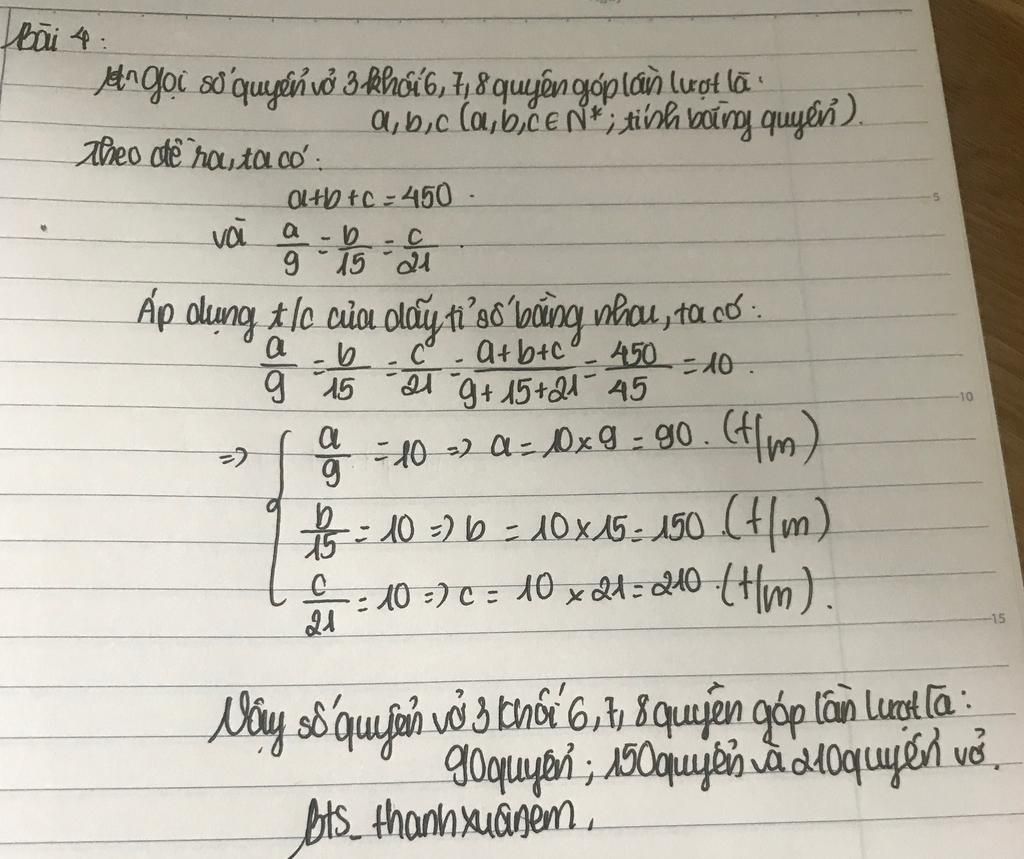 Bài 4:
Gọi số quyển vở 3 khối 6, 7, 8 quyên góp lần lượt là:
a, b, c (a, b, c ∈ N*; tính bằng quyển).
Theo đề ra, ta có:
a+b+c = 450.
và a/9 = b/15 = c/21.
Áp dụng t/c của dãy tỉ số bằng nhau, ta có:
a/9 = b/15 = c/21 = (a+b+c)/(9+15+21) = 450/45 = 10.
=> { a/9 = 10 => a = 10 × 9 = 90. (t/m)
b/15 = 10 => b = 10 × 15 = 150. (t/m)
c/21 = 10 => c = 10 × 21 = 210. (t/m).
Vậy số quyển vở 3 khối 6, 7, 8 quyên góp lần lượt là:
90 quyển; 150 quyển và 210 quyển vở.
Bts_thanhxuanem.
5
10
15